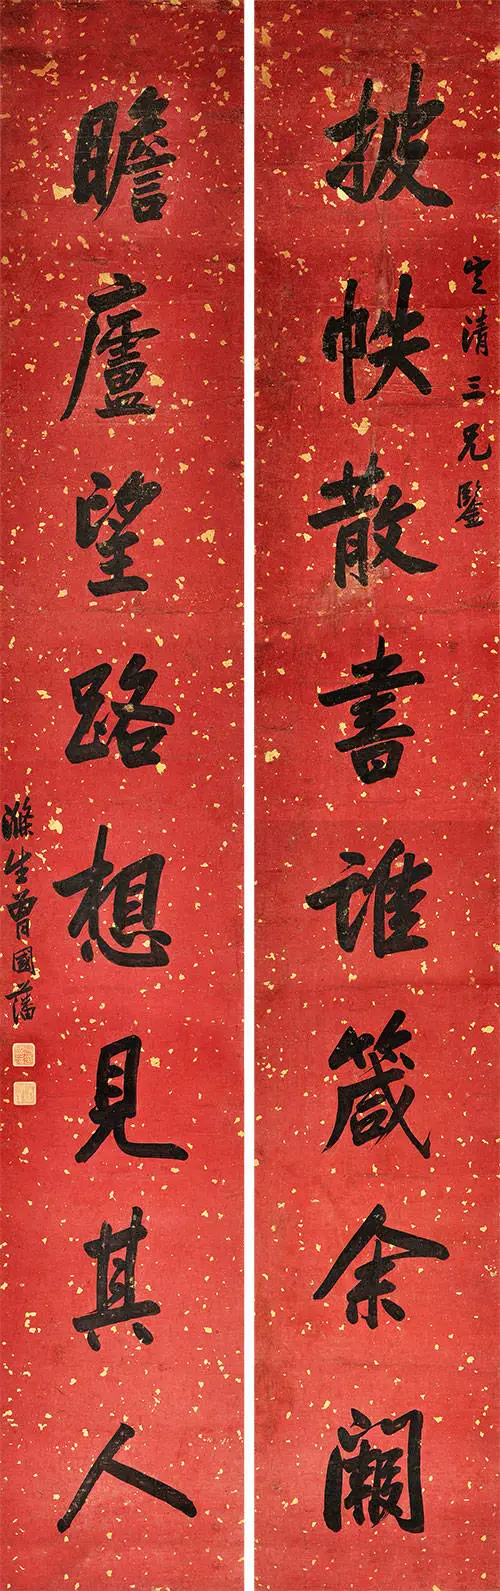 定清三兄鑒
披帙散書誰箴余闕
瞻廬望路想見其人
滌生曾國藩